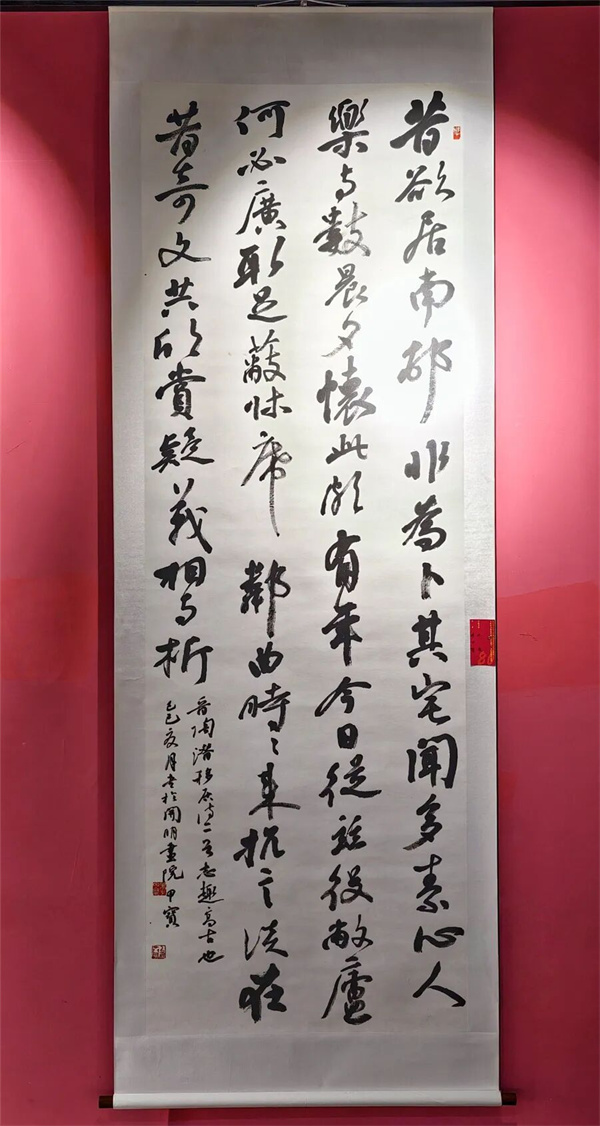 昔欲居南邨非為卜其宅聞多素心人
樂与數晨夕懷此頗有年今日從茲役敝廬
何必廣取足蔽牀席鄰曲時〻来抗言談在
昔奇文共欣賞疑義相与析
晉陶潛移居詩二首志趣高古也
乙巳夏月書於開明畫院甲寶